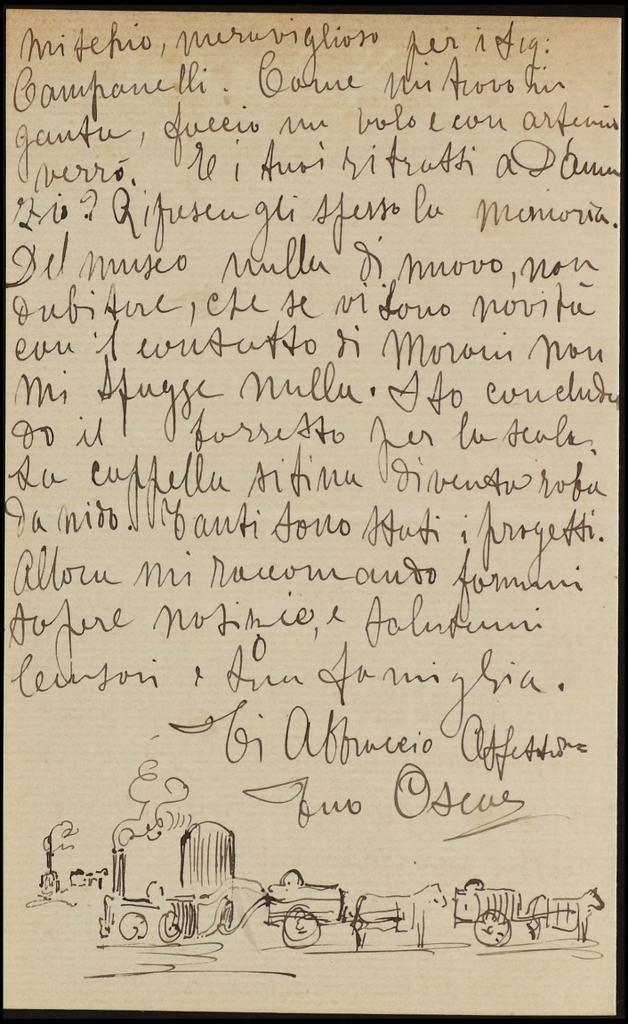 misterio, meraviglioso per i Sig:
Campanelli. Come mi trovo in
gamba, faccio un volo e con
verrò. E i tuoi ritratti a D'Annun
zio? Rifresca gli spesso la memoria.
Del museo nulla di nuovo, non
dubitare, che se vi sono novità
con il contatto di Moroni non
mi sfugge nulla. Sto concluden
do il bozzetto per la scala.
La cappella sistina diventa roba
da nido. Tanti sono stati i progetti.
Allora mi raccomando fammi
sapere notizie, e salutami
Censori e tua famiglia.
Ti Abbraccio
tuo Oscar